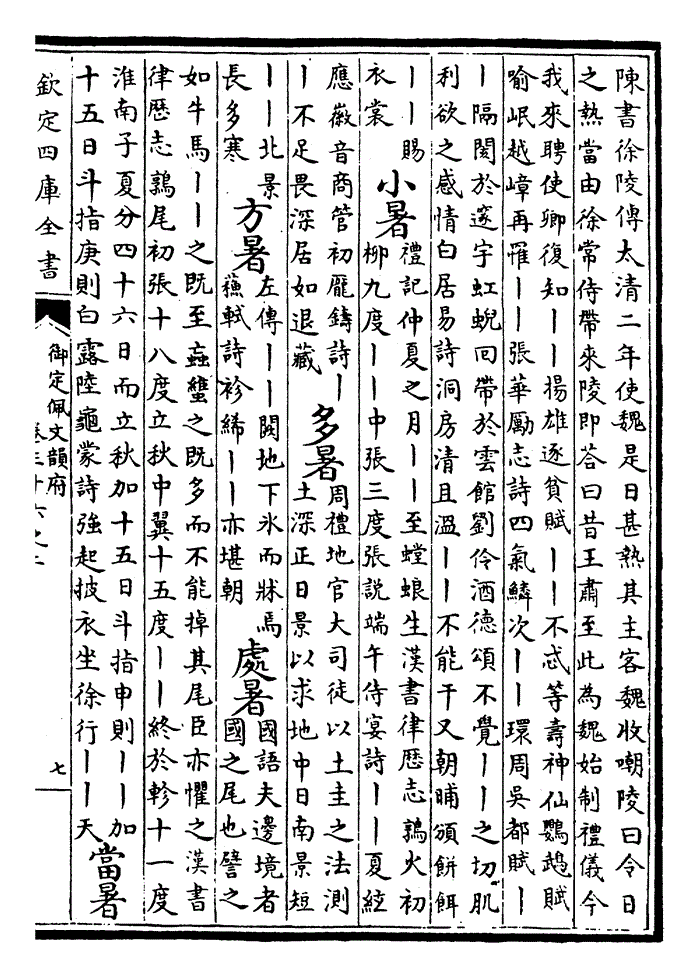 陳書徐陵傳太清二年使魏是日甚熱其主客魏收嘲陵曰今日
之熱當由徐常侍帶來陵即答曰昔王肅至此為魏始制禮儀今
我來聘使卿復知丨丨揚雄逐貧賦丨丨不忒等壽神仙鸚鵡賦
喻岷越嶂再罹丨丨張華勵志詩四氣鱗次丨丨環周吳都賦丨
丨隔閡於邃宇虹蜺回帶於雲館劉伶酒德頌不覺丨丨之切肌
利欲之感情白居易詩洞房清且溫丨丨不能干又朝晡頒餅餌
丨丨賜
衣裳
小暑
禮記仲夏之月丨丨至螳蜋生漢書律歷志鶉火初
柳九度丨丨中張三度張說端午侍宴詩丨丨夏絃
應徽音商管初罷鑄詩丨
丨不足畏深居如退藏
多暑
周禮地官大司徒以土圭之法測
土深正日景以求地中日南景短
丨丨北景
長多寒
方暑
左傳丨丨闕地下氷而牀焉
蘇軾詩袗絺丨丨亦堪朝
處暑
國語夫邊境者
國之尾也譬之
如牛馬丨丨之既至䖟之既多而不能掉其尾臣亦懼之漢書
律歷志鶉尾初張十八度立秋中翼十五度丨丨終於軫十一度
淮南子夏分四十六日而立秋加十五日斗指申則丨丨加
十五日斗指庚則白露陸龜蒙詩強起披衣坐徐行丨丨天
當暑
欽定四庫全書
御定佩文韻府
卷三十六之二
七